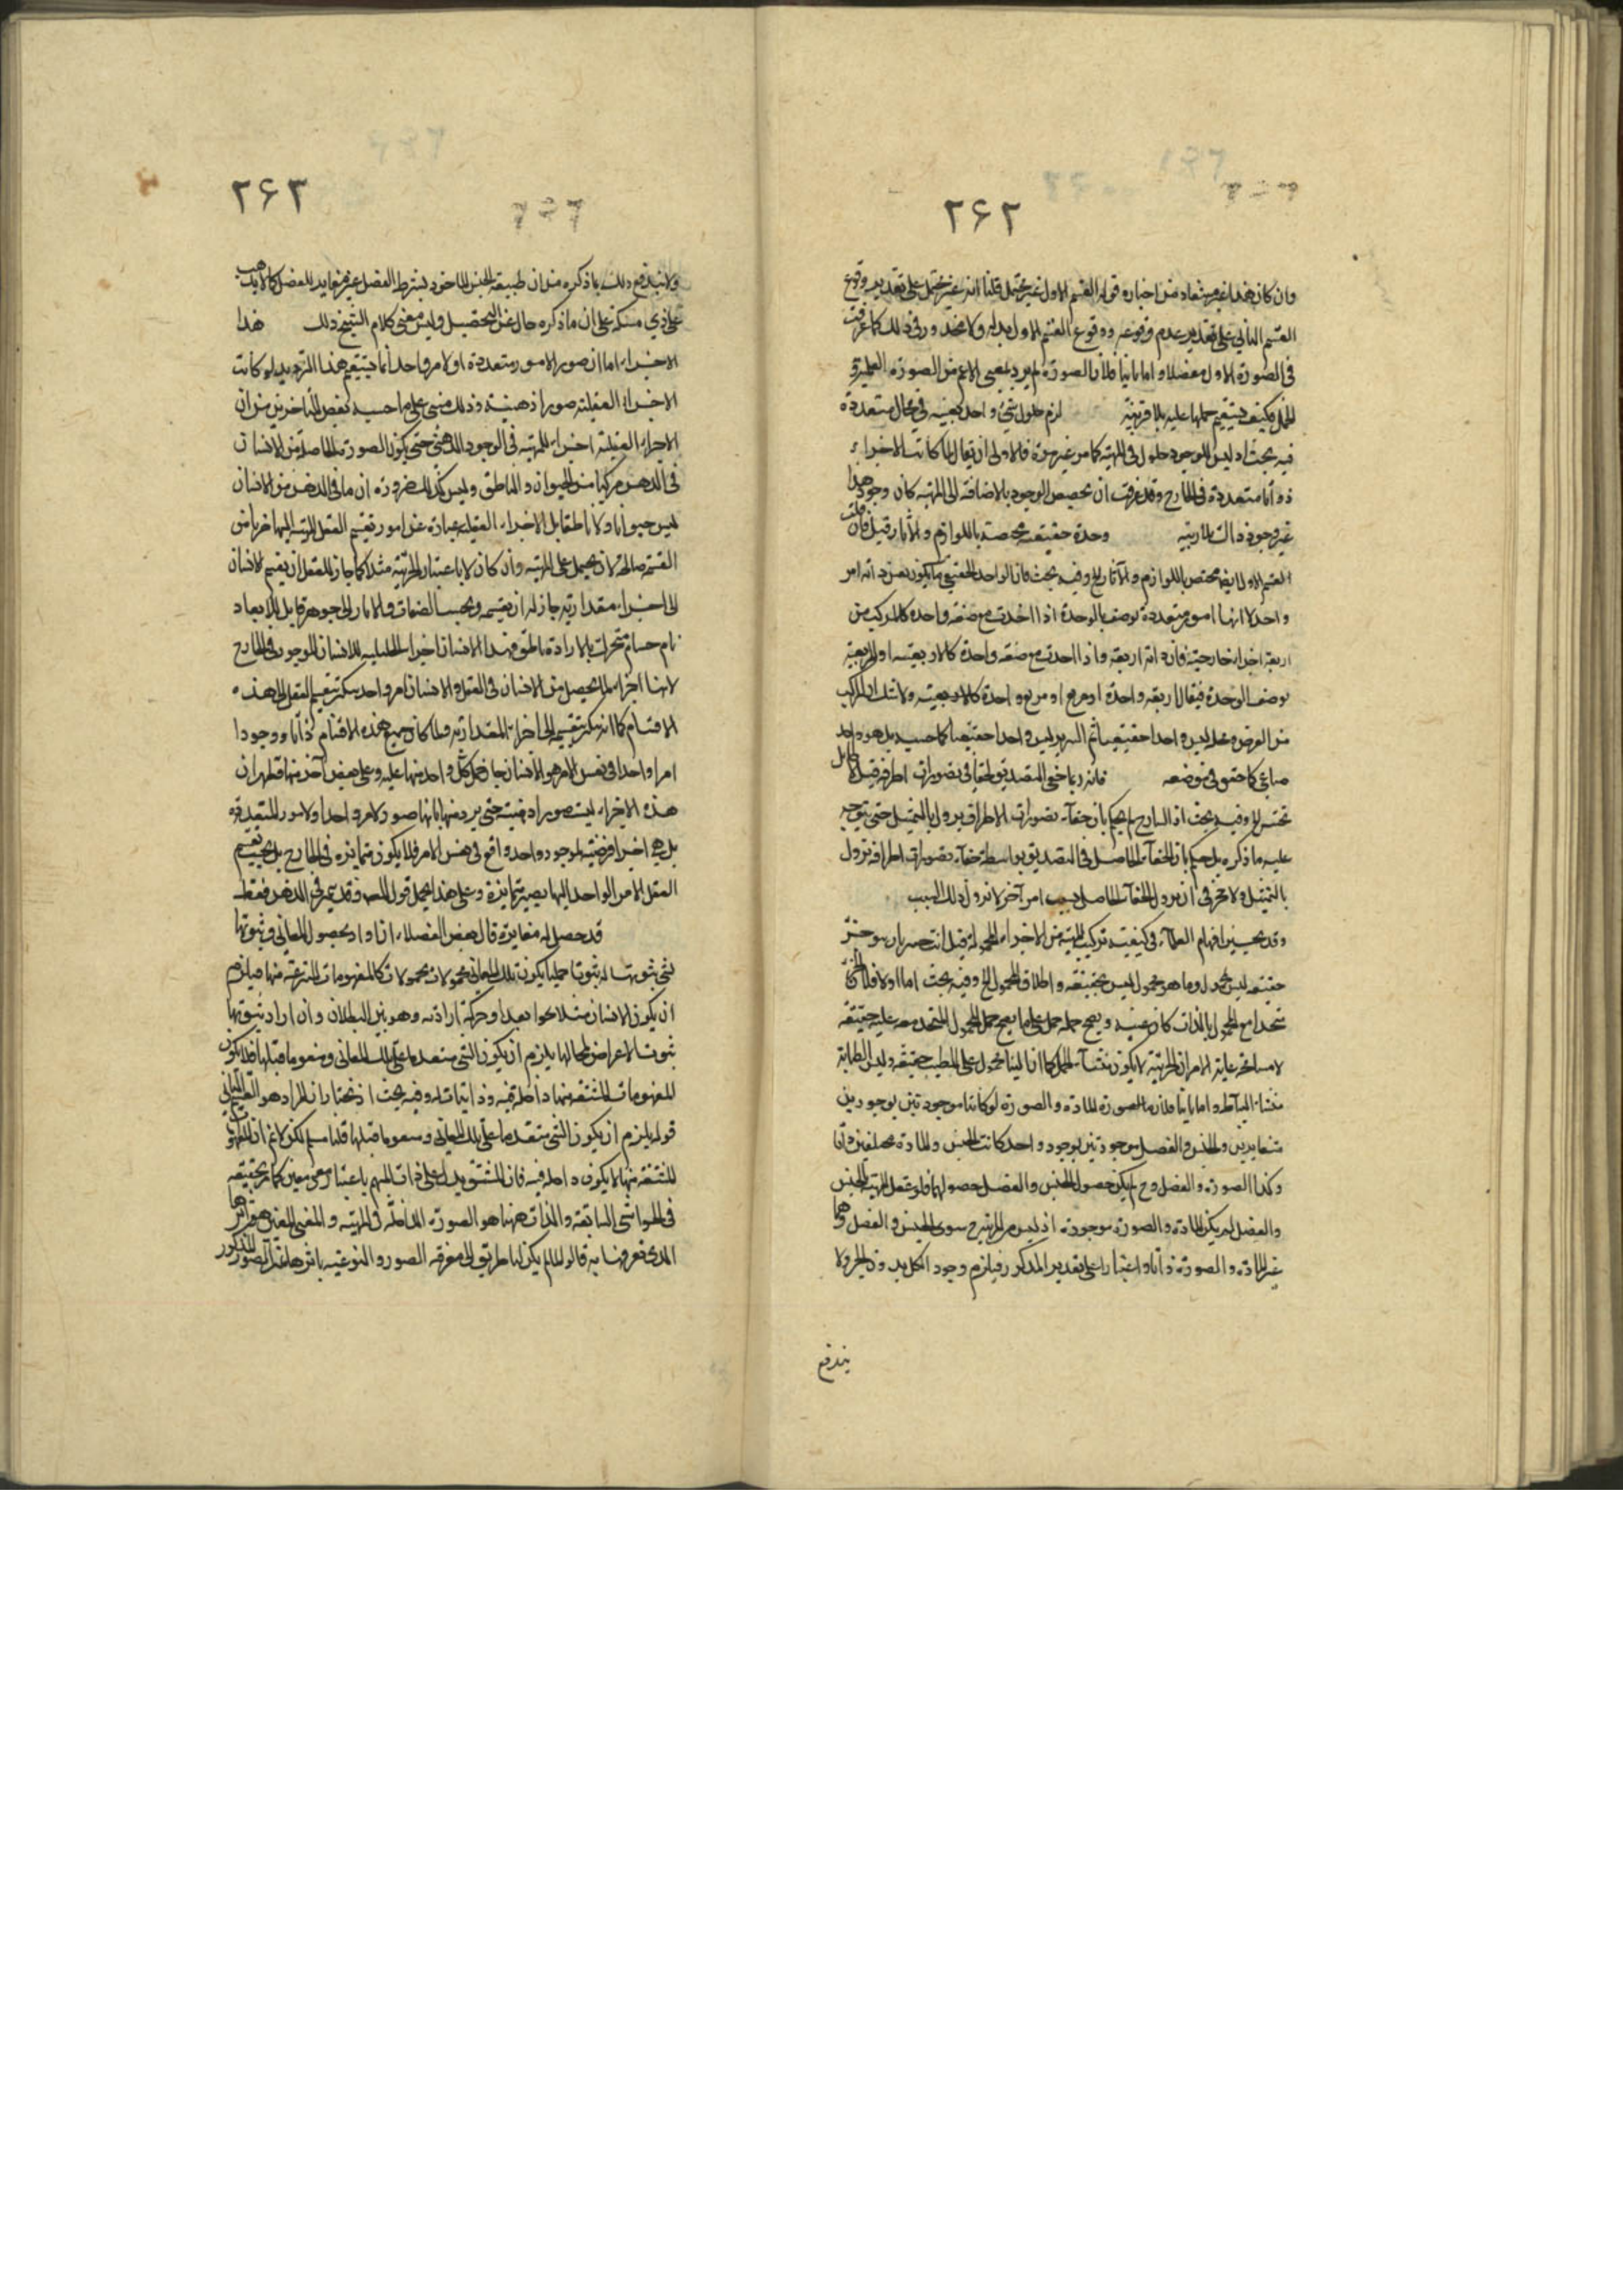 ۲۶۲
وان كان هذا غير مستفاد من اخباره قوله القسم الاول غير محتمل قلنا انه غير محتمل على تقدير وقوع
القسم الثاني على تقدير عدم وقوعه ووقوع القسم الاول بدله ولا محذور في ذلك كما عرفت
في الصورة الاول مفصلا واما ثانيا فلان الصورة لم يرد بمعنى الاعم من الصورة العلمية
للحمل فكيف يستقيم حملها عليه بلا قرينة لزم حلول شئ واحد بعينه في محال متعددة
فيه بحث اذ ليس للوجود حلول في المهية كما مر غير مرة فالاولى ان يقال لما كانت الاجزاء
ذواتا متعددة في الخارج وقد عرفت ان تخصيص الوجود بالاضافة الى المهية كان وجود هذا
غير وجود ذاك وحدة حقيقية مختصة باللوازم والآثار قيل فان قلت
القسم الاول ايضا مختص باللوازم والآثار الخ وفيه بحث فان الواحد الحقيقي ما يكون بحد ذاته امر
واحد لا انها امور متعددة توصف بالوحدة اذا اخذت مع صفة واحدة كالمركب من
اربعة اجزاء خارجية فان ذاته اربعة واذا اخذت مع صفة واحدة كالاربعية او المربعية
توصف الوحدة فيقال اربعة واحدة او مربع واحدة كالاربعية ولا شك ان المركب
من العرض ومحله ليس واحدا حقيقيا ثم السرير ليس واحدا حقيقيا كما حسبه بل هو واحد
صناعي كما حقق في موضعه فانه ربما خفي التصديق لخفاء في تصورات اطرافه قيل لا طائل
تحته الخ وفيه بحث اذ الشارح لم يحكم بان خفاء تصورات الاطراف يزول بالتمثيل حتى يتوجه
عليه ما ذكره بل حكم بان الخفاء الحاصل في التصديق بواسطة خفاء تصورات اطرافه تزول
بالتمثيل ولا يخفى ان زوال الخفاء الحاصل بسبب امر آخر لا زوال ذلك السبب
وقد تحير افهام العلماء في كيفية تركيب المهية من الاجزاء المحمولة قيل
حقيقة ليس بمحمول وما هو محمول ليس بحقيقة واطلاق المحمول الخ وفيه بحث اما اولا فلان
متحدا مع المحمول بالذات كان عينه ويصح حمله على ما يصح حمل المحمول المتحد معه عليه حقيقة
لا مسامحة غاية الامر ان الجزئية لا يكون منشاء الحمل كما ان البناء محمول على الطبيب حقيقة وليس الطبابة
منشاء البناء واما ثانيا فلان الصورة المادة والصورة لو كانتا موجودتين بوجودين
متغايرين والجنس والفصل موجودتين بوجود واحد كانت الجنس والمادة مختلفين ذاتا
وكذا الصورة والفصل وح لم يكن حصول الجنس والفصل حصولهما فلو عقل المهية الجنس
والفصل لم يكن المادة والصورة موجودة اذ ليس من المهية ح سوى الجنس والفصل وهما
غير المادة والصورة ذاتا واعتبارا على تقدير المذكور فيلزم وجود الكل بدون الجزء ولا
يندفع
۲۶۳
ولا يندفع ذلك بما ذكره من ان طبيعة الجنس الماخوذ بشرط الفصل غير مغاير للفصل كما لا يذهب
على ذي مسكة على ان ما ذكره خال عن التحصيل وليس معنى كلام الشيخ ذلك هذا
الاجزاء اما ان صور الامور متعددة او لامر واحد انما يستقيم هذا الترديد لو كانت
الاجزاء العقلية صورا ذهنية وذلك مبني على ما حسبه بعض المتأخرين من ان
الاجزاء العقلية اجزاء للمهية في الوجود الذهني حتى يكون الصورة الحاصلة من الانسان
في الذهن مركبا من الحيوان والناطق وليس كذلك ضرورة ان ما في الذهن من الانسان
ليس حيوانا ولا ناطقا بل الاجزاء العقلية عبارة عن امور تقسيم العقل المهية اليها ضربا من
القسمة صالحة لان يحمل على المهية وان كان لا باعتبار الجزئية مثلا كما جاز للعقل ان يقسم الانسان
الى اجزاء مقدارية جاز له ان يقسمه بحسب الصفات والآثار الى جوهر قابل للابعاد
نام حساس متحرك بالارادة ناطق فهذا الاقسام اجزاء تحليلية للانسان الموجود في الخارج
لانها اجزاء لما يحصل من الانسان في العقل والانسان امر واحد يمكن تقسيم العقل الى هذه
الاقسام كما انه يمكن تقسيمه الى اجزاء المقدارية ولما كان جميع هذه الاقسام ذاتا ووجودا
امرا واحدا في نفس الامر هو الانسان جاز حمل كل واحد منها عليه وعلى بعض آخر منها فظهر ان
هذه الاجزاء ليست صورا ذهنية حتى يردد فيها بانها صور لامر واحد او لامور المتعددة
بل هي اجزاء فرضية لموجود واحد واقع في نفس الامر فلا يكون متمايزة في الخارج بل بحسب تقسيم
العقل الامر الواحد اليها يصير متمايزة وعلى هذا يحمل قول المص وقد يتميز في الذهن فقط
قد حصل له مغايرة قال بعض الفضلاء ان اراد بحصول المعاني وثبوتها
لشئ ثبوتها له ثبوتا حمليا يكون تلك المعاني محمولات محمولات كالمفهومات المنتزعة منها فيلزم
ان يكون الانسان مثلا نحوا بعدا وحركة ارادية وهو بين البطلان وان اراد ثبوتها
ثبوت الاعراض لمحالها يلزم ان يكون الشئ متقدما على تلك المعاني ومقوما قبلها فلا يكون
المفهومات المشتقة منها داخلة فيه وذاتيات له وفيه بحث اذ نختار ان المراد هو القسم الثاني
قوله يلزم ان يكون الشئ متقدما على تلك المعاني ومقوما قبلها قلنا مسلم لكن لا نم ان المفهوم
المشتقة منها لا يكون داخلة فيه فان المشتق يدل على ذات المبهم باعتبار معنى معين كما مر تحقيقه
في الحواشي السابقة والذات هيهنا هو الصورة الداخلة في المهية والمعنى المعين هو اثرها
الذي تعرفنا به قالوا لما لم يكن لنا طريق الى معرفة الصور النوعية باثرها